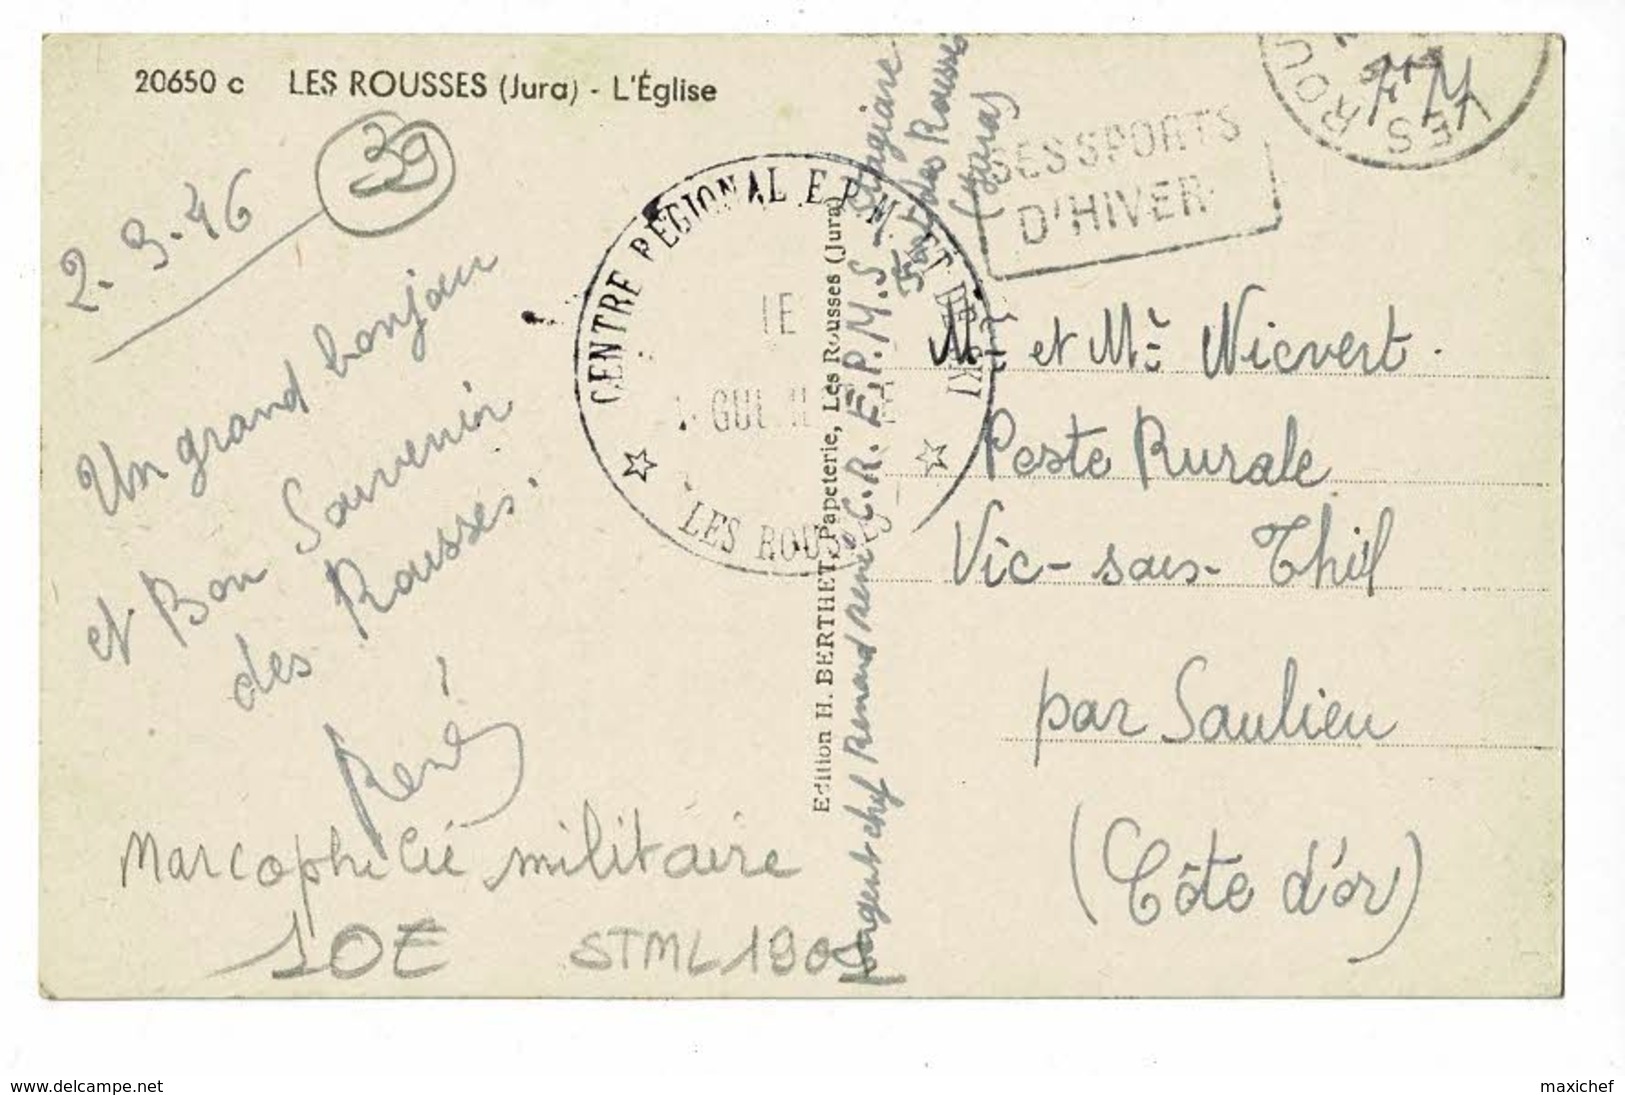 20650 c LES ROUSSES (Jura) - L'Église
39
2-9-46
Un grand bonjour
et Bon Souvenir
des Rousses.
René
Marcophilie militaire
10E STML 190
Edition H. BERTHET, Papeterie, Les Rousses (Jura)
CENTRE RÉGIONAL E.P.M. ET DE SKI
LES ROUSSES
Sergent chef Renard René C.R.E.P.M.S - Stagiaire
Fort des Rousses
(Jura)
SES SPORTS
D'HIVER
LES ROU
F M
Mr et Me Nicvert.
Poste Rurale
Vic-sous-Thil
par Saulieu
(Côte d'or)
www.delcampe.net
maxichef